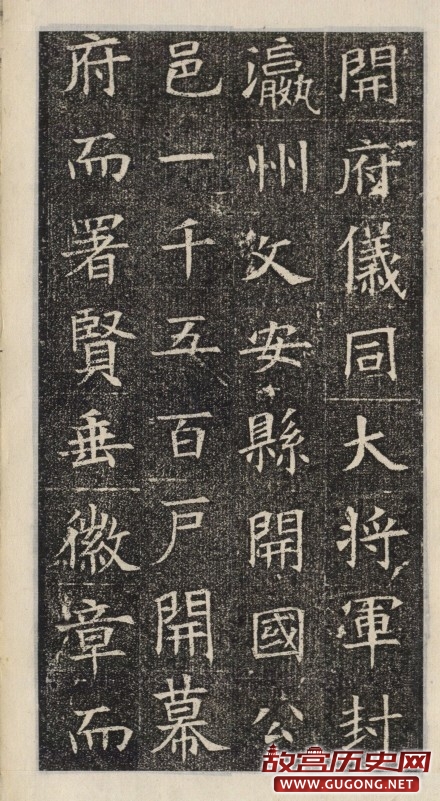 開府儀同大將軍封
瀛州文安縣開國公
邑一千五百戶開幕
府而署賢垂徽章而
故宫历史网
www.GUGONG.NET